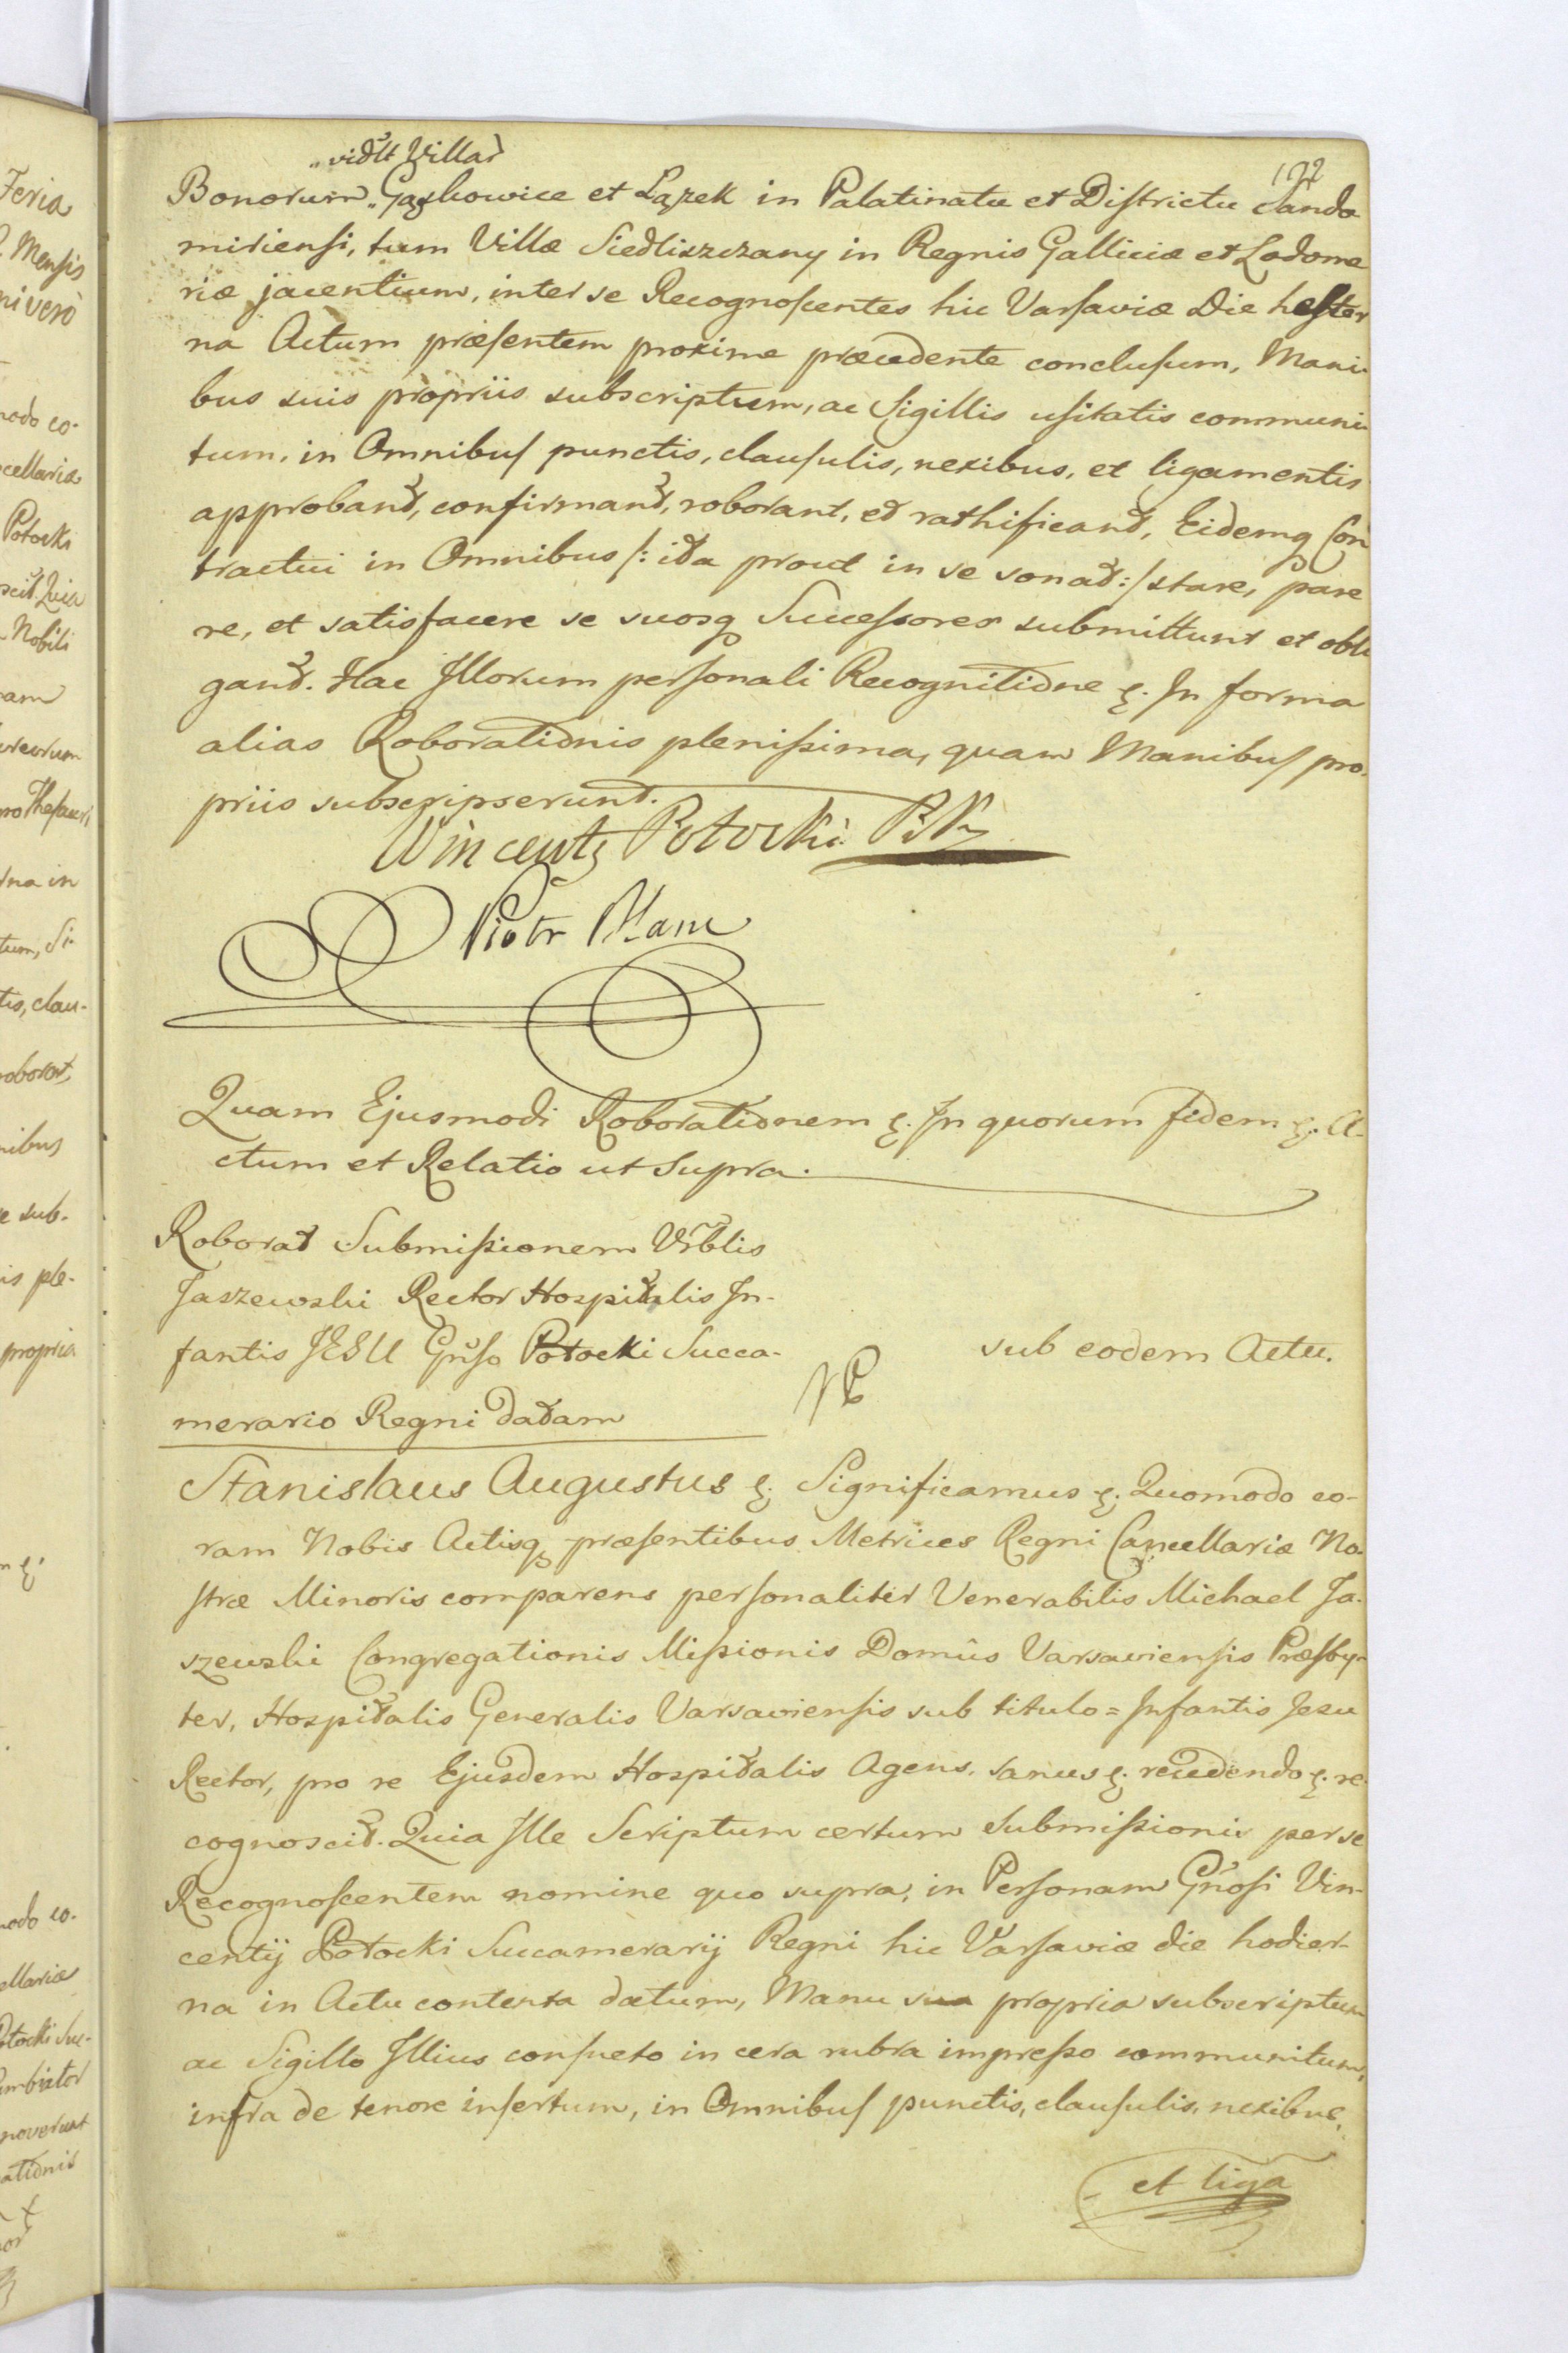 192
„vidlt Villar
Bonorum „Gązkowice et Łązek in Palatinatu et Districtu Sando
miriensi, tum Villæ Siedliszczany in Regnis Galliciæ et Lodome
riæ jacentium, inter se Recognoscentes hic Varsaviæ Die hester
na Actum præsentem proxime præcedente conclusum, Mani-
bus suis propriis subscriptum, ac Sigillis usitatis communi-
tum, in Omnibus punctis, clausulis, nexibus, et ligamentis
approbant, confirmant, roborant, et rathificant, Eidemq Con
tractui in Omnibus /: ita prout in se sonat :/ stare, pare
re, et satisfacere se suosq Successores submittunt et obli
gant. Hac Illorum personali Recognitione &. In forma
alias Roborationis plenissima, quam Manibus pro-
priis subscripserunt.
Wincenty Potocki PK
Piotr Blanc
Quam Ejusmodi Roborationem &. In quorum fidem &. A-
ctum et Relatio ut Supra.
Roborat Submissionem Vrblis
Jaszewski Rector Hospitalis In-
fantis JESU Gnso Potocki Succa-
merario Regni datam
sub eodem Actu.
Stanislaus Augustus &. Significamus &. Quomodo co-
ram Nobis Actisq præsentibus Metrices Regni Cancellariæ No-
stræ Minoris comparens personaliter Venerabilis Michael Ja-
szewski Congregationis Missionis Domûs Varsaviensis Præsby-
ter, Hospitalis Generalis Varsaviensis sub titulo = Infantis Jesu
Rector, pro re Ejusdem Hospitalis Agens, sanus &. recedendo &. re-
cognoscit. Quia Ille Scriptum certum Submissionis per se
Recognoscentem nomine quo supra, in Personam Gnosi Vin-
centij Potocki Succamerarij Regni hic Varsaviæ die hodier-
na in Actu contenta datum, Manu sua propria subscriptum
ac Sigillo Illius consueto in cera rubra impresso communitum,
infra de tenore insertum, in Omnibus punctis, clausulis, nexibus,
et liga